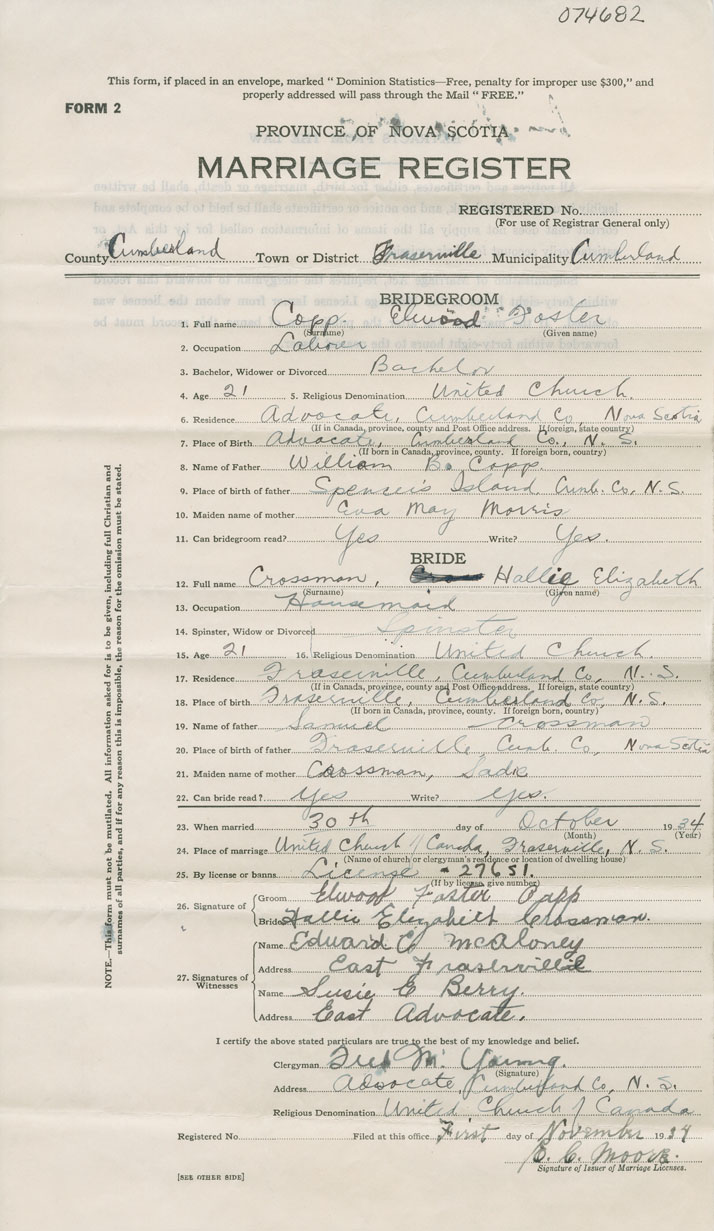 074682
This form, if placed in an envelope, marked " Dominion Statistics—Free, penalty for improper use $300," and
properly addressed will pass through the Mail " FREE."
FORM 2
PROVINCE OF NOVA SCOTIA
MARRIAGE REGISTER
REGISTERED No.
(For use of Registrar General only)
County Cumberland Town or District Fraserville Municipality Cumberland
BRIDEGROOM
1. Full name Copp. Elwood Foster
(Surname) (Given name)
2. Occupation Laborer
3. Bachelor, Widower or Divorced Bachelor
4. Age 21 5. Religious Denomination United Church.
6. Residence Advocate, Cumberland Co, Nova Scotia
(If in Canada, province, county and Post Office address. If foreign, state country)
7. Place of Birth Advocate, Cumberland Co., N. S.
(If born in Canada, province, county. If foreign born, country)
8. Name of Father William B. Copp.
9. Place of birth of father Spencer's Island Cumb. Co, N. S.
10. Maiden name of mother Eva May Morris
11. Can bridegroom read? Yes Write? Yes.
BRIDE
12. Full name Crossman, Hallie Elizabeth
(Surname) (Given name)
13. Occupation Housemaid
14. Spinster, Widow or Divorced Spinster
15. Age 21 16. Religious Denomination United Church.
17. Residence Fraserville, Cumberland Co, N. S.
(If in Canada, province, county and Post Office address. If foreign, state country)
18. Place of birth Fraserville, Cumberland Co, N. S.
(If born in Canada, province, county. If foreign born, country)
19. Name of father Samuel Crossman
20. Place of birth of father Fraserville, Cumb. Co, Nova Scotia
21. Maiden name of mother Crossman, Sadie
22. Can bride read? Yes Write? Yes.
23. When married 30th day of October 1934
(Month) (Year)
24. Place of marriage United Church of Canada, Fraserville, N. S.
(Name of church or clergyman's residence or location of dwelling house)
25. By license or banns License - 27651.
(If by license, give number)
26. Signature of Groom Elwood Foster Copp
Bride Hallie Elizabeth Crossman.
27. Signatures of Witnesses Name Edward C McAloney
Address East Fraserville
Name Susie E Berry.
Address East Advocate.
I certify the above stated particulars are true to the best of my knowledge and belief.
Clergyman Fred M. Young.
(Signature)
Address Advocate, Cumberland Co, N. S.
Religious Denomination United Church of Canada
Registered No. Filed at this office First day of November 1934
Moore.
Signature of Issuer of Marriage Licenses.
[SEE OTHER SIDE]
NOTE.—This form must not be mutilated. All information asked for is to be given, including full Christian and
surnames of all parties, and if for any reason this is impossible, the reason for the omission must be stated.